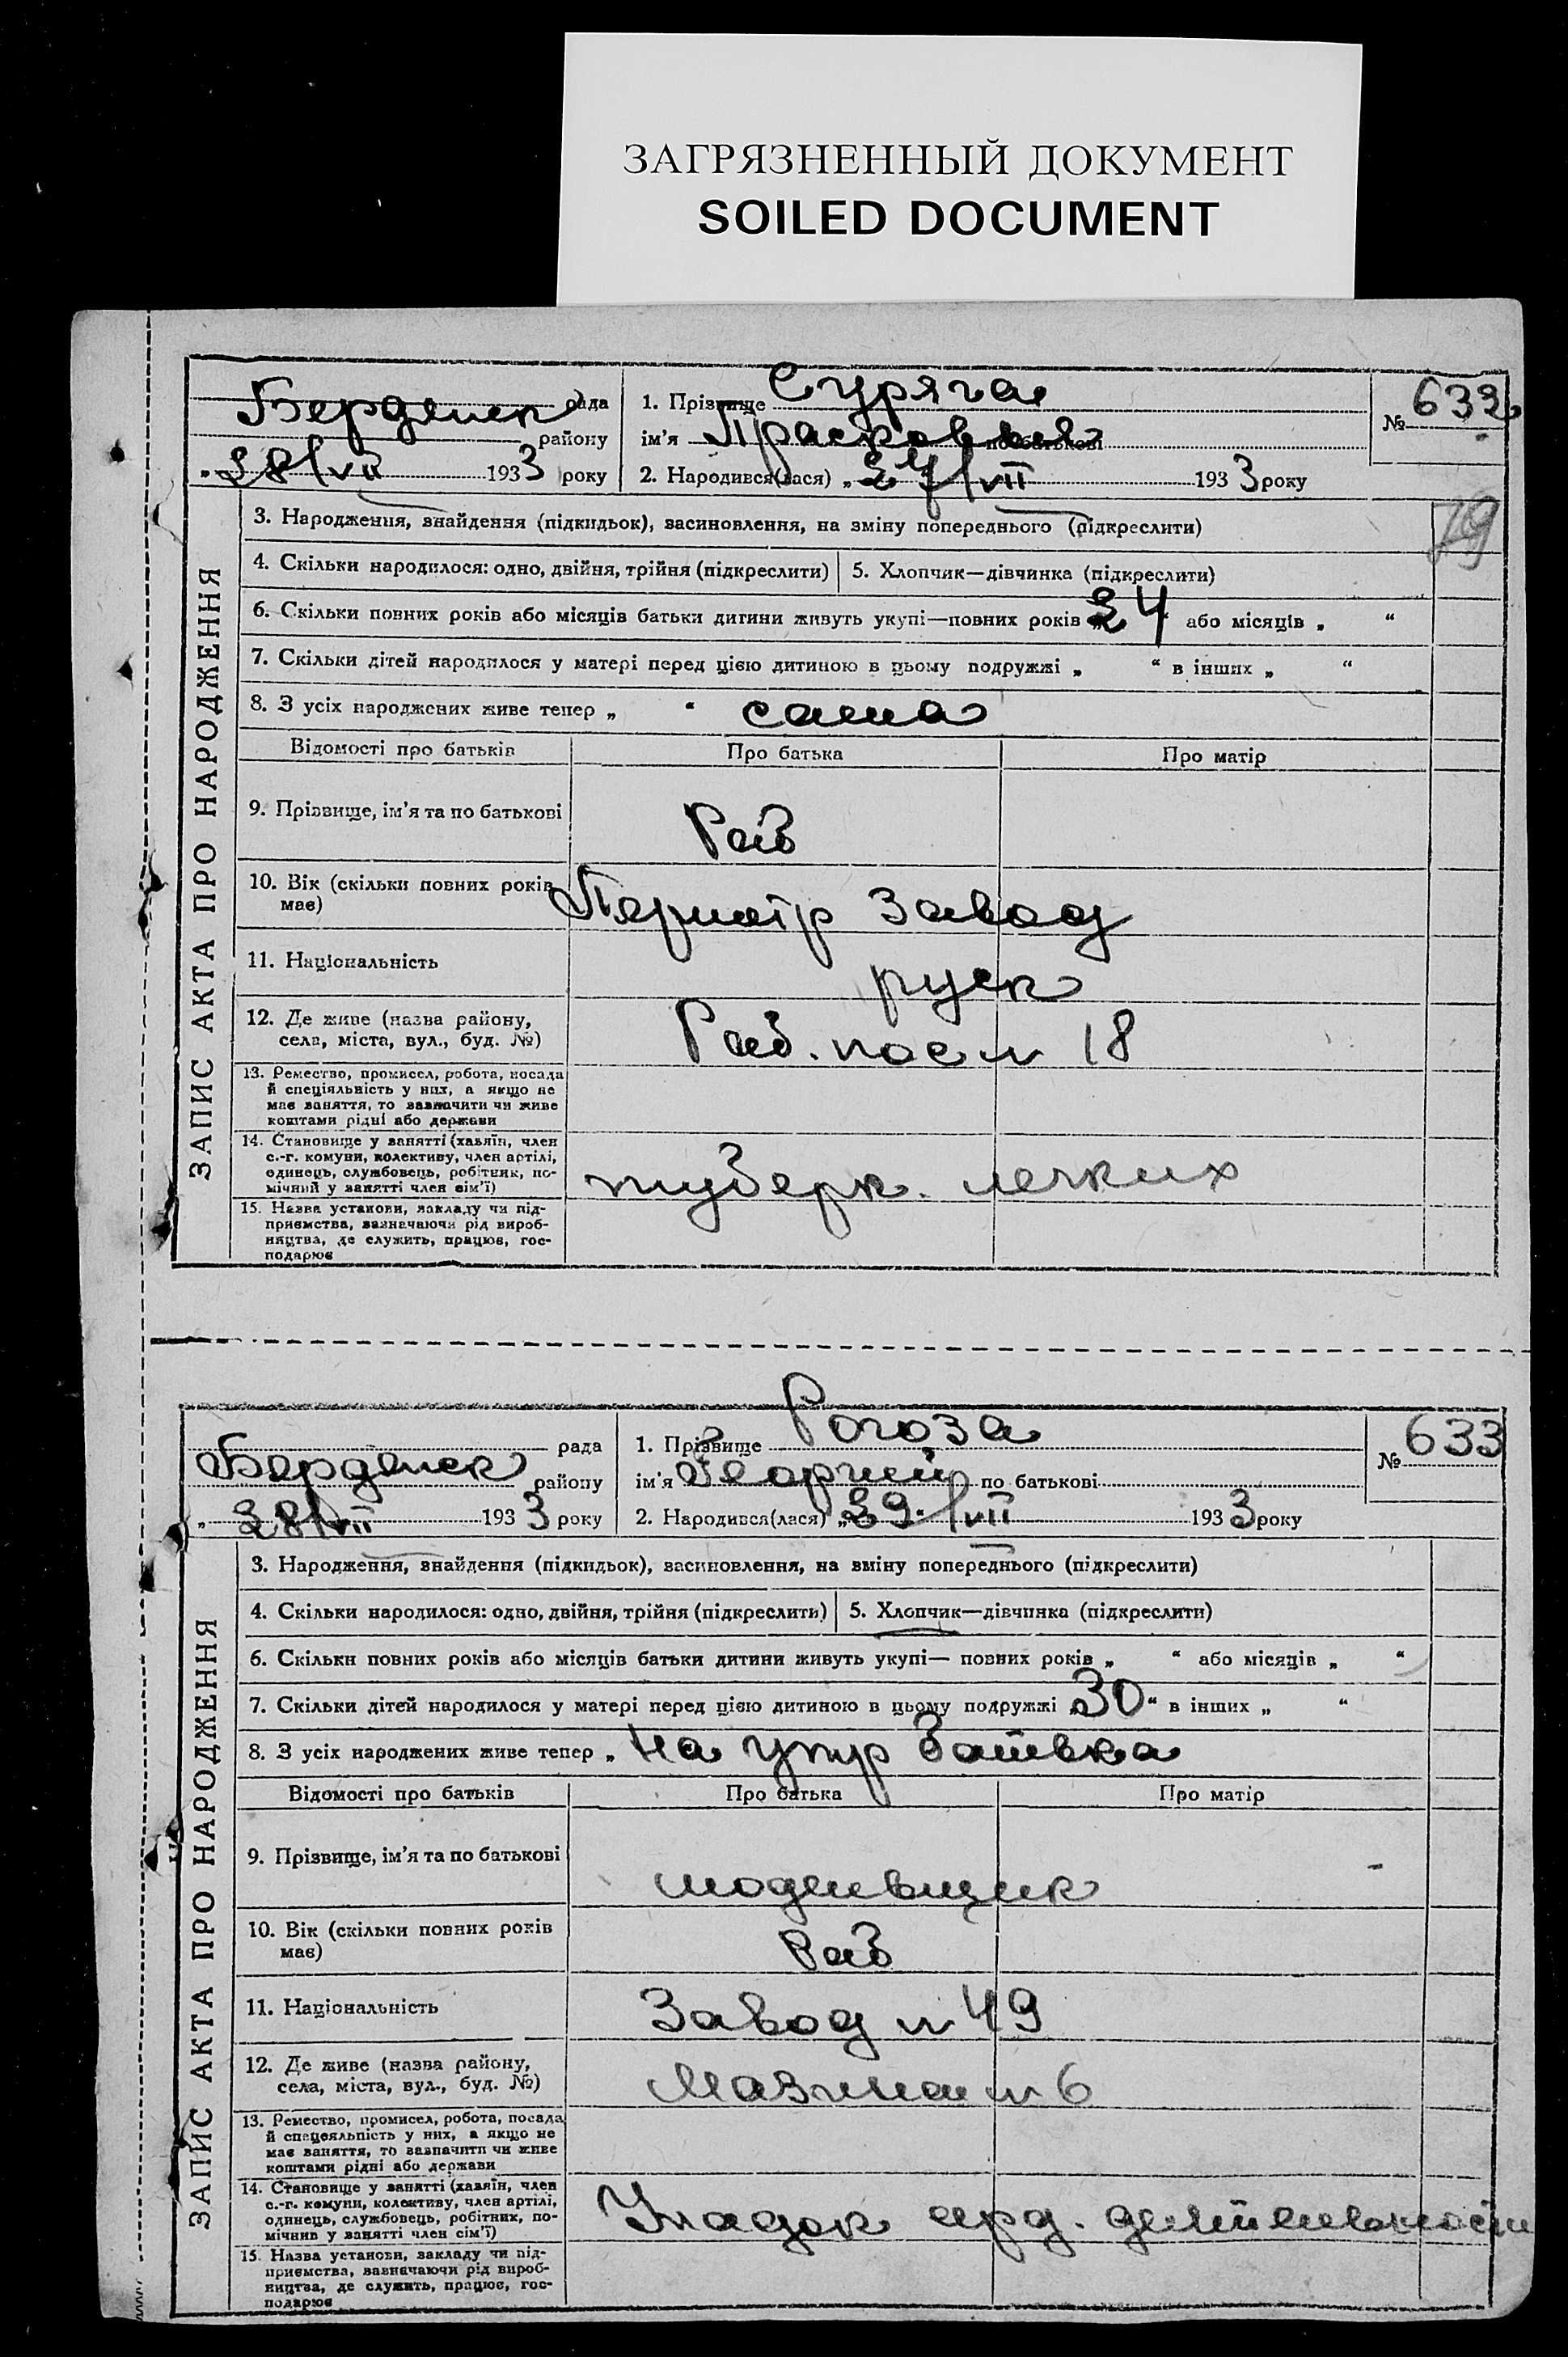 ЗАГРЯЗНЕННЫЙ ДОКУМЕНТ
SOILED DOCUMENT
ЗАПИС АКТА ПРО НАРОДЖЕННЯ
Бердянск рада
району
28/VII 1933 року
1. Прізвище Суряга
ім'я Прасковья по батькові
2. Народився(лася) „ 27/VII 1933 року
№ 632
79
3. Народження, знайдення (підкидьок), засиновлення, на зміну попереднього (підкреслити)
4. Скільки народилося: одно, двійня, трійня (підкреслити)
5. Хлопчик—дівчинка (підкреслити)
6. Скільки повних років або місяців батьки дитини живуть укупі—повних років „ 24 “ або місяців „ “
7. Скільки дітей народилося у матері перед цією дитиною в цьому подружжі „ “ в інших „ “
8. З усіх народжених живе тепер „ “ сама
Відомості про батьків
Про батька
Про матір
9. Прізвище, ім'я та по батькові
Раб
10. Вік (скільки повних років має)
завод
11. Національність
руск
12. Де живе (назва району, села, міста, вул., буд. №)
Раб. пос 18
13. Ремество, промисел, робота, посада
й спеціяльність у них, а якщо не
має заняття, то зазначити чи живе
коштами рідні або держави
14. Становище у занятті (хазяїн, член
с.-г. комуни, колективу, член артілі,
одинець, службовець, робітник, по-
мічний у занятті член сім'ї)
туберк. легких
15. Назва установи, закладу чи під-
приємства, зазначаючи рід вироб-
ництва, де служить, працює, гос-
подарює
ЗАПИС АКТА ПРО НАРОДЖЕННЯ
рада
Бердянск району
28/VII 1933 року
1. Прізвище Рогоза
ім'я Георгий по батькові
2. Народився(лася) „ 29/VII 1933 року
№ 633
3. Народження, знайдення (підкидьок), засиновлення, на зміну попереднього (підкреслити)
4. Скільки народилося: одно, двійня, трійня (підкреслити)
5. Хлопчик—дівчинка (підкреслити)
6. Скільки повних років або місяців батьки дитини живуть укупі— повних років „ “ або місяців „ “
7. Скільки дітей народилося у матері перед цією дитиною в цьому подружжі „ 30 “ в інших „ “
8. З усіх народжених живе тепер „ на
Відомості про батьків
Про батька
Про матір
9. Прізвище, ім'я та по батькові
10. Вік (скільки повних років має)
Раб
11. Національність
Завод n 49
12. Де живе (назва району, села, міста, вул., буд. №)
Мазина n 6
13. Ремество, промисел, робота, посада
й спецеяльність у них, а якщо не
має заняття, то зазначити чи живе
коштами рідні або держави
14. Становище у занятті (хазяїн, член
с.-г. комуни, колективу, член артілі,
одинець, службовець, робітник, по-
мічний у занятті член сім'ї)
Упадок серд. деятельности
15. Назва установи, закладу чи під-
приємства, зазначаючи рід вироб-
ництва, де служить, працює, гос-
подарює